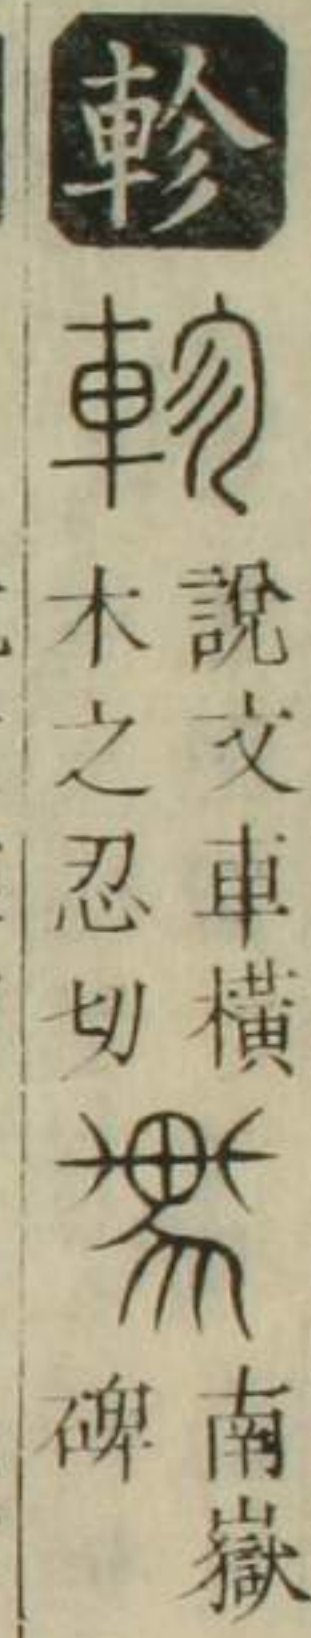 軫
軫
說文車橫
木之忍切
南嶽
碑